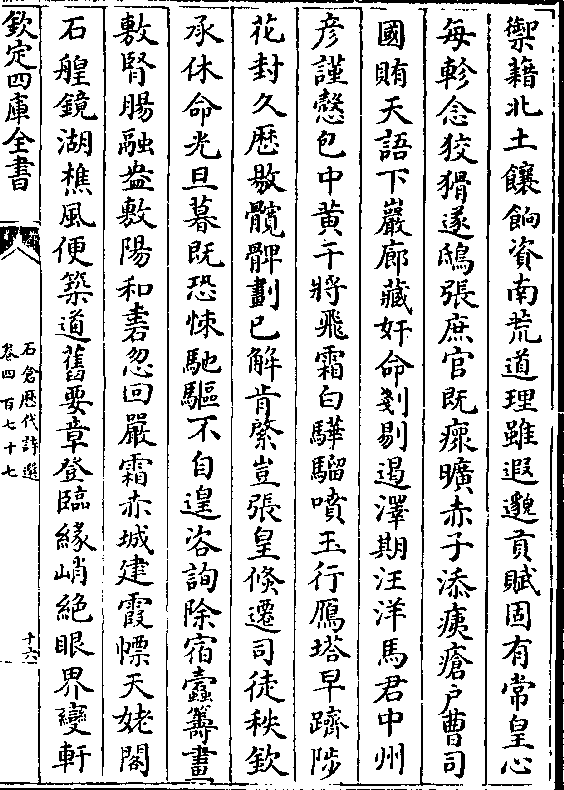 禦籍北土饟餉資南荒道理雖遐邈貢賦固有常皇心
每軫念狡猾遂鴟張庶官既瘝曠赤子添痍瘡户曹司
國賄天語下巖廊藏奸命剗剔遏澤期汪洋馬君中州
彦謹慤包中黄干將飛霜白驊騮噴玉行鴈塔早躋陟
花封久歴敭髖髀劃已解肯綮豈張皇倐遷司徒秩欽
承休命光旦暮既恐悚馳驅不自遑咨詢除宿蠧籌畫
敷腎腸融盎敷陽和砉忽回嚴霜赤城建霞幖天姥閣
石艎鏡湖樵風便築道舊要章登臨緣峭絶眼界夐軒
欽定四庫全書
石倉歴代詩選
卷四百七十七
十六